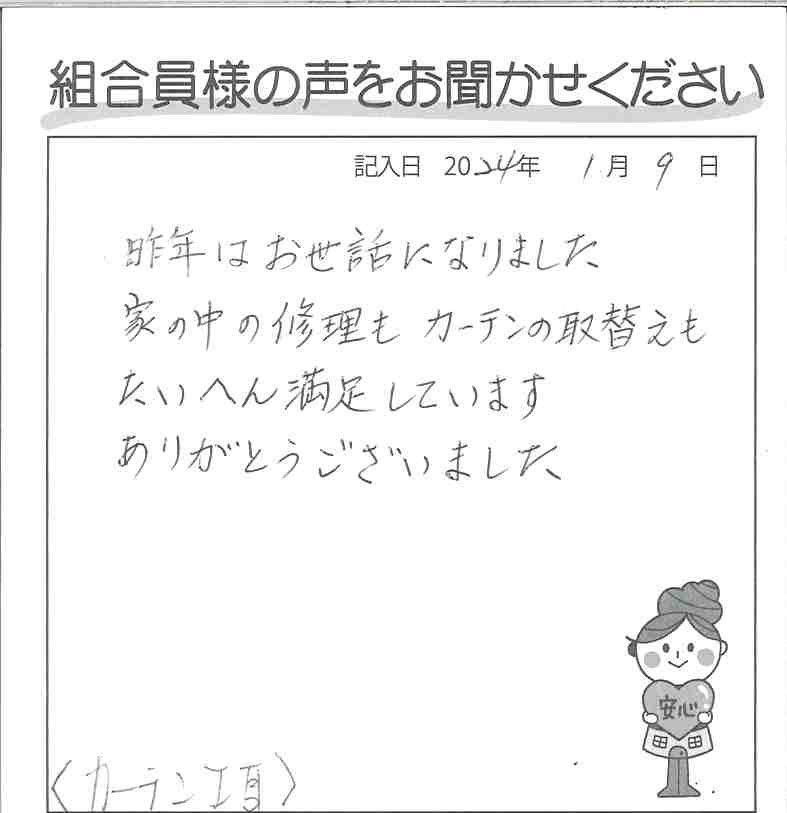 組合員様の声をお聞かせください
記入日 2024年 1月 9日
昨年はお世話になりました
家の中の修理も カーテンの取替えも
たいへん満足しています
ありがとうございました
安心